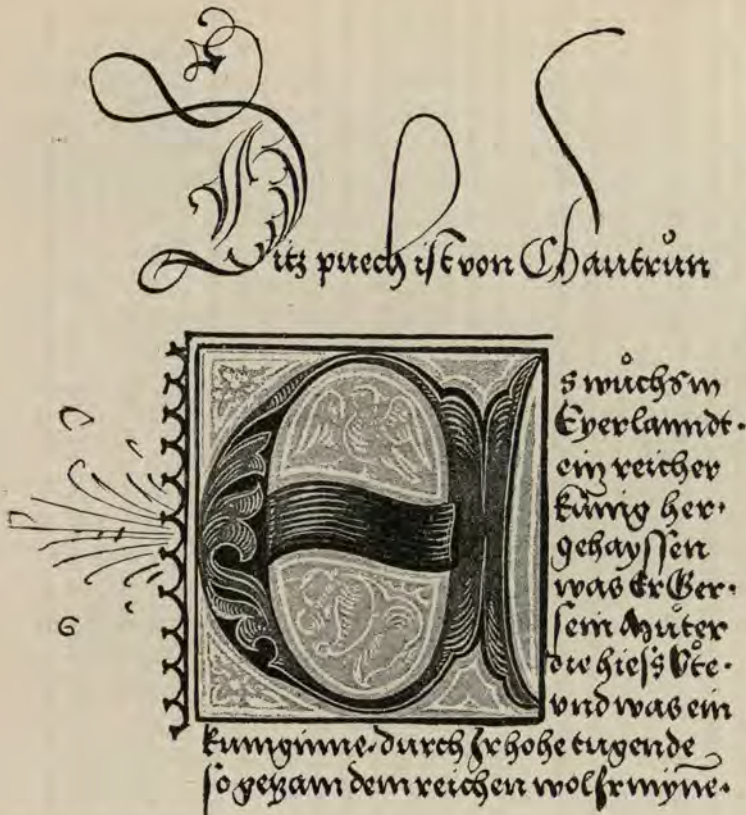 Ditz puech ist von Chautrůn
Es wůchs in
Eyerlanndt ·
ein reicher
kůnig her ·
gehayssen
was Er Ger ·
sein Můter
die hieſs Ůte ·
vnd was ein
kuniginne · durch Ir hohe tugende
ſo gezam dem reichen wol Ir mynne ·